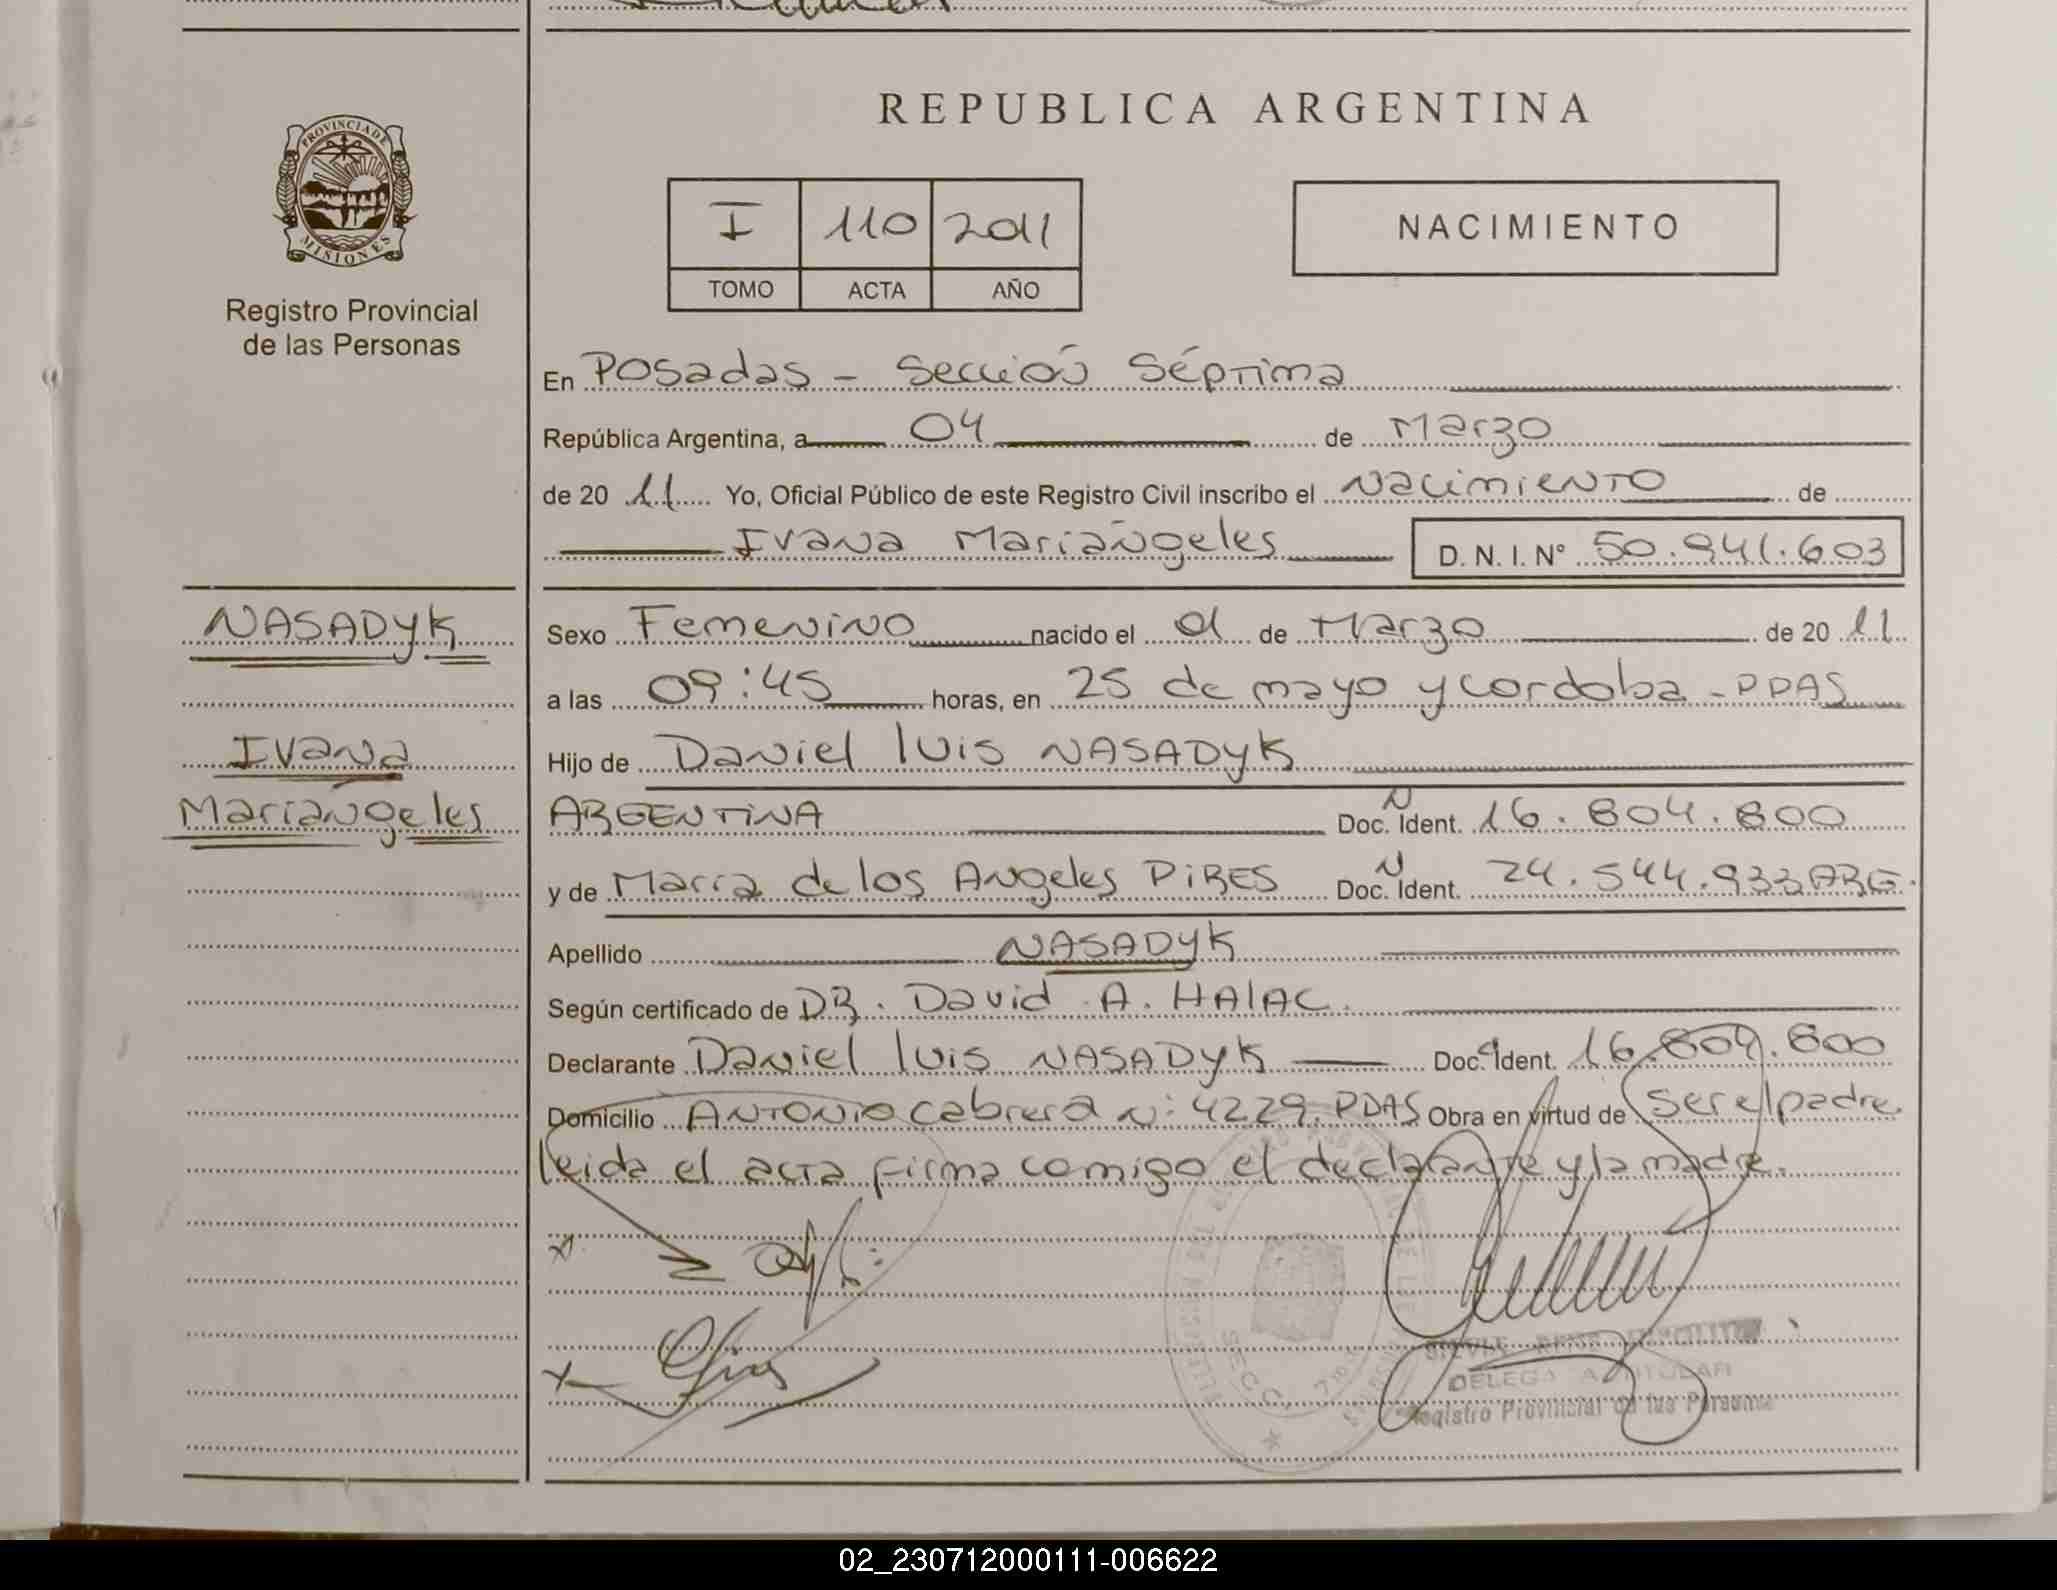 REPUBLICA ARGENTINA
PROVINCIA DE
MISIONES
Registro Provincial
de las Personas
I 110 2011
TOMO ACTA AÑO
NACIMIENTO
En Posadas - Sección Séptima
República Argentina, a 04 de Marzo
de 20 11 Yo, Oficial Público de este Registro Civil inscribo el Nacimiento de
Ivana Mariángeles D. N. I. N° 50.941.603
NASADYK
Ivana
Mariángeles
Sexo Femenino nacido el 01 de Marzo de 20 11
a las 09:45 horas, en 25 de mayo y cordoba - PDAS
Hijo de Daniel luis NASADYK
ARGENTINA Doc. Ident. N 16.804.800
y de María de los Angeles PIRES Doc. Ident. N 24.544.933 ARG.
Apellido NASADYK
Según certificado de DR. David A. HALAC.
Declarante Daniel luis NASADYK Doc. Ident. 16.804.800
Domicilio Antonio Cabrera N: 4229. PDAS Obra en virtud de ser el padre.
leida el acta firma comigo el declarante y la madre.
x
x
SECC. 7
DELEGADA TITULAR
Registro Provincial de las Personas
02_230712000111-006622